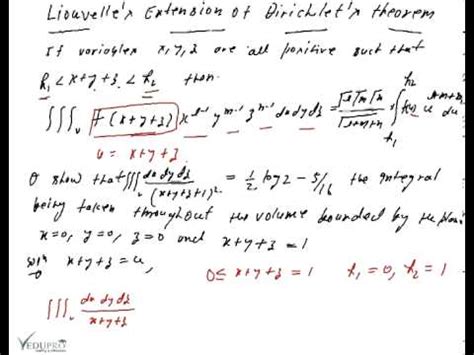 Liouvelle's Extension of Dirichlet's theorem
If variables x, y, z are all positive such that
h₁ < x+y+z < h₂ then
∭ᵥ f(x+y+z) x^{l-1} y^{m-1} z^{n-1} dx dy dz = \frac{Γl Γm Γn}{Γl+m+n} × ∫_{h₁}^{h₂} f(u) u^{l+m+n-1} du
u = x+y+z
show that ∭ᵥ \frac{dx dy dz}{(x+y+z+1)²} = \frac{1}{2} log 2 - 5/16 the integral
being taken throughout the volume bounded by the plane
x=0, y=0, z=0 and x+y+z = 1
solⁿ x+y+z = u, 0 ≤ x+y+z = 1 h₁ = 0, h₂ = 1
∭ \frac{dx dy dz}{x+y+z}
EDUPRO